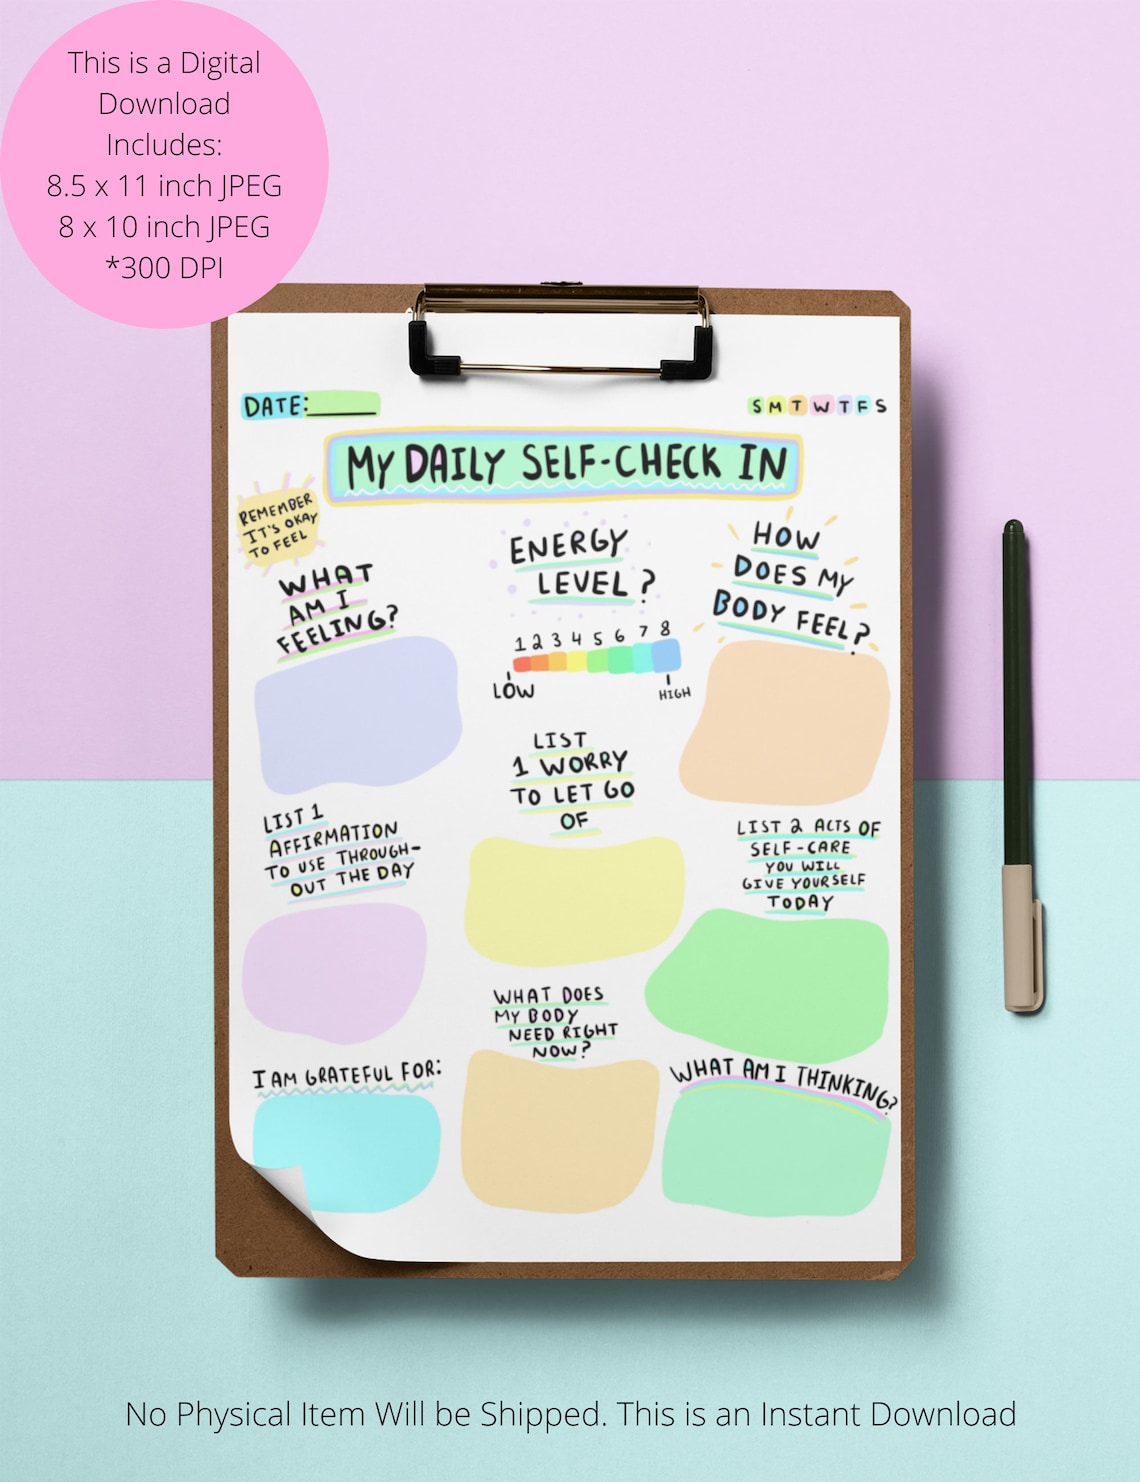 This is a Digital
Download
Includes:
8.5 x 11 inch JPEG
8 x 10 inch JPEG
*300 DPI
DATE:
S M T W T F S
MY DAILY SELF-CHECK IN
REMEMBER
IT'S OKAY
TO FEEL
WHAT
AM I
FEELING?
ENERGY
LEVEL?
1 2 3 4 5 6 7 8
LOW
HIGH
HOW
DOES MY
BODY FEEL?
LIST 1
AFFIRMATION
TO USE THROUGH-
OUT THE DAY
LIST
1 WORRY
TO LET GO
OF
LIST 2 ACTS OF
SELF-CARE
YOU WILL
GIVE YOURSELF
TODAY
I AM GRATEFUL FOR:
WHAT DOES
MY BODY
NEED RIGHT
NOW?
WHAT AM I THINKING?
No Physical Item Will be Shipped. This is an Instant Download